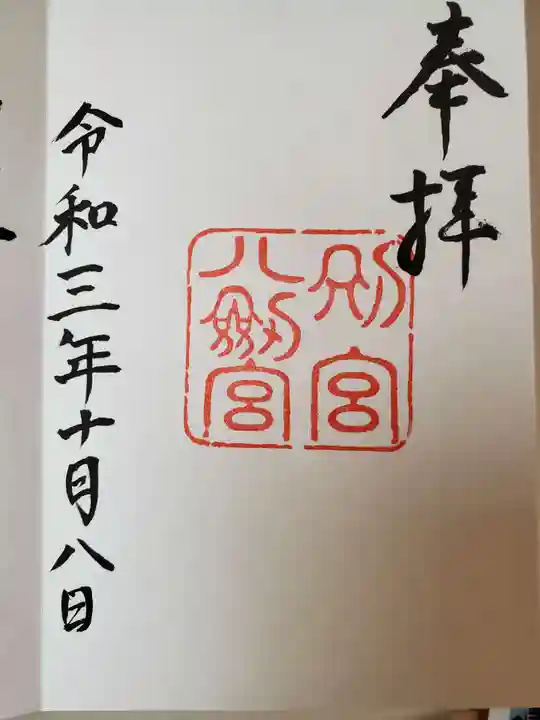 奉拝
別宮
八剱宮
令和三年十月八日